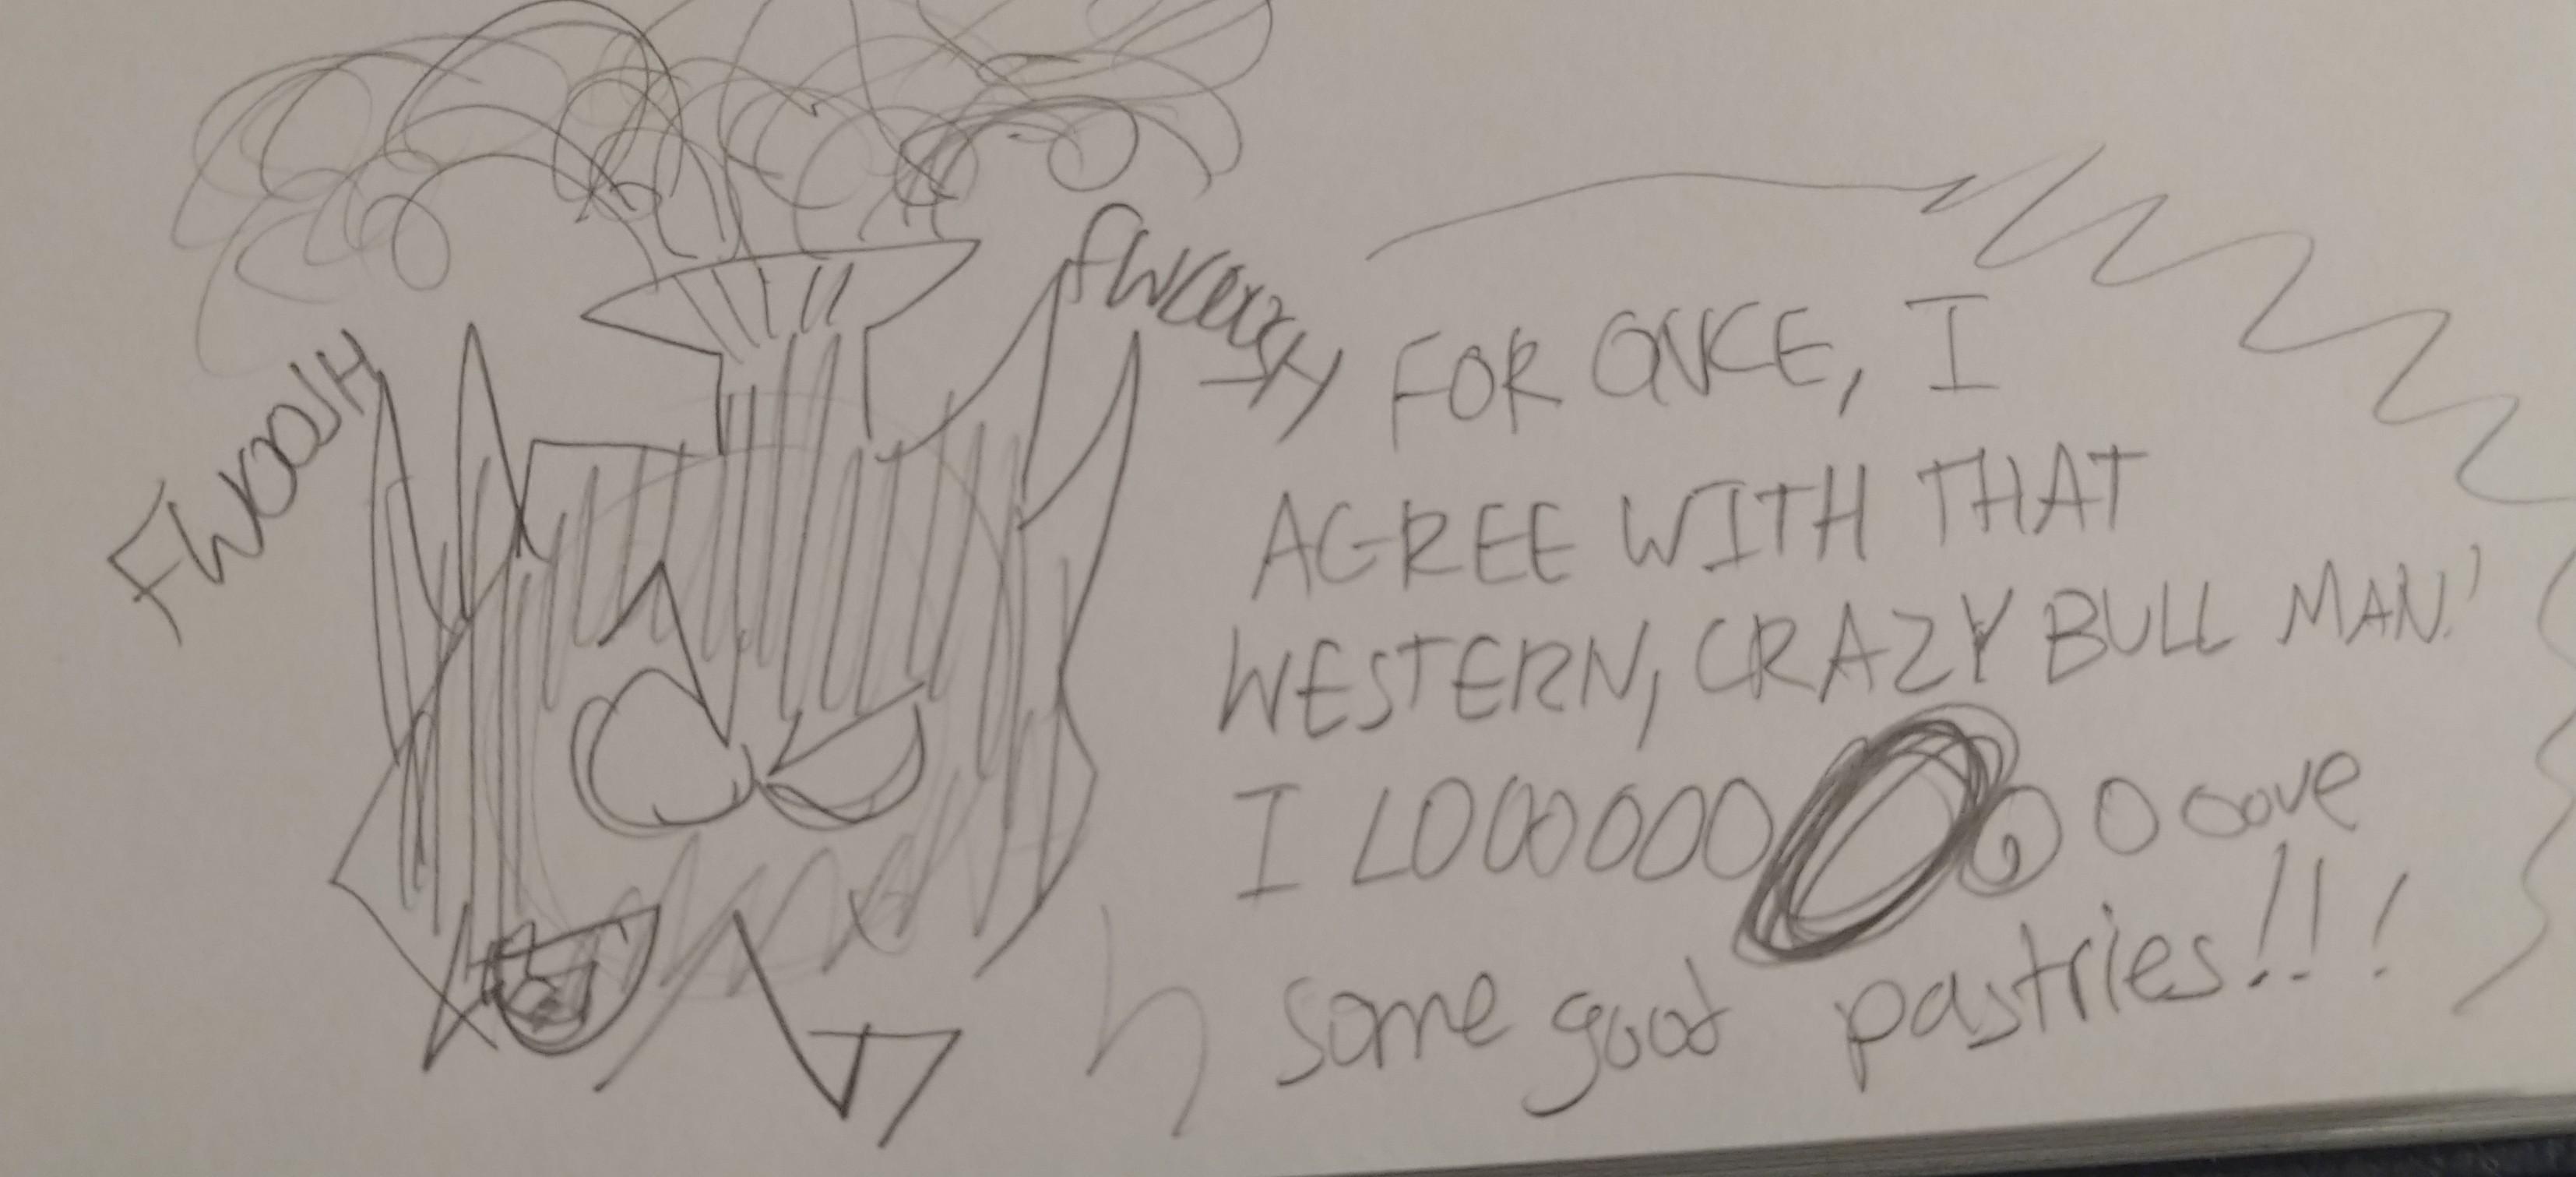 FWOOSH
FWOOOSH
FOR ONCE, I
AGREE WITH THAT
WESTERN, CRAZY BULL MAN!
I LOOOOOOOOOOOove
some good pastries!!!